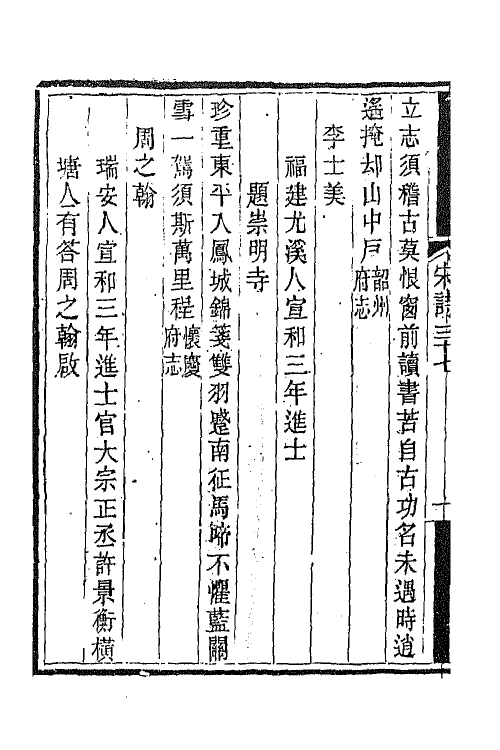 立志須稽古莫恨窗前讀書苦自古功名未遇時逍
遙掩却山中戶韶州府志
李士美
福建尤溪人宣和三年進士
題崇明寺
珍重東平入鳳城錦箋雙羽蹙南征馬蹄不懼藍關
雪一駕須斯萬里程懷慶府志
周之翰
瑞安人宣和三年進士官大宗正丞許景衡橫
塘人有答周之翰啟